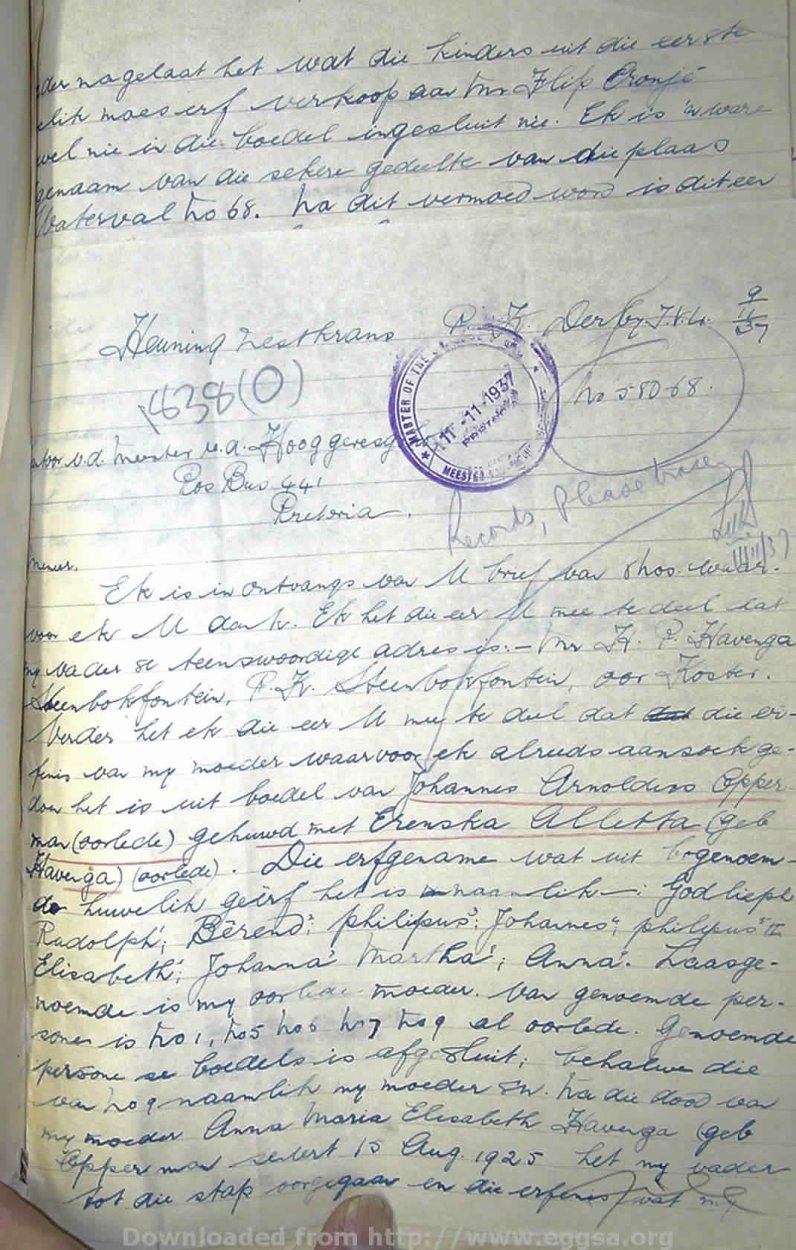 der nagelaat het wat die kinders uit die eerste
elik moes erf verkoop aan Mr Flip Oranje
wel nie in die boedel ingesluit nie. Ek is 'n ware
genaam van die sekere gedeelte van die plaas
Waterval No 68. Na dit vermoed word is dit een
Heuning Nestkrans P. K. Derby. T.V.L. 9/11/37
1838(O)
No 580-68.
MASTER OF THE
11-11-1937
MEESTER VAN
v.d. Meester v.d. Hooggeregs
Pos Bus 441
Pretoria.
Records, Please trace
11/11/37
Meneer.
Ek is in ontvangs van U brief van
voor ek U dank. Ek het die eer U mee te deel dat
my vader se teenswoordige adres is:- Mr H. P. Havenga
Steenbokfontein, P. K. Steenbokfontein, oor Koster.
Verder het ek die eer U mee te deel dat die er-
fenis van my moeder waarvoor ek alreeds aansoek ge-
doen het is uit boedel van Johannes Arnoldus Opper-
man (oorlede) gehuwd met Erenska Alletta (geb
Havenga) (oorlede). Die erfgename wat uit bogenoem-
de huwelik geërf het is naamlik:- Godlieph
Rudolph; Bêrend; Philipus; Johannes; Philipus II
Elisabeth; Johanna; Martha; Anna. Laasge-
noemde is my oorlede moeder. Van genoemde per-
sone is No 1, No 5 No 6 No 7 No 9 al oorlede. Genoemde
persone se boedels is afgesluit; behalwe die
van No 9 naamlik my moeder s'n. Na die dood van
my moeder Anna Maria Elisabeth Havenga (geb
Opperman sedert 15 Aug. 1925 het my vader
tot die stap oorgegaan en die erfenis wat my
Downloaded from http://www.eggsa.org